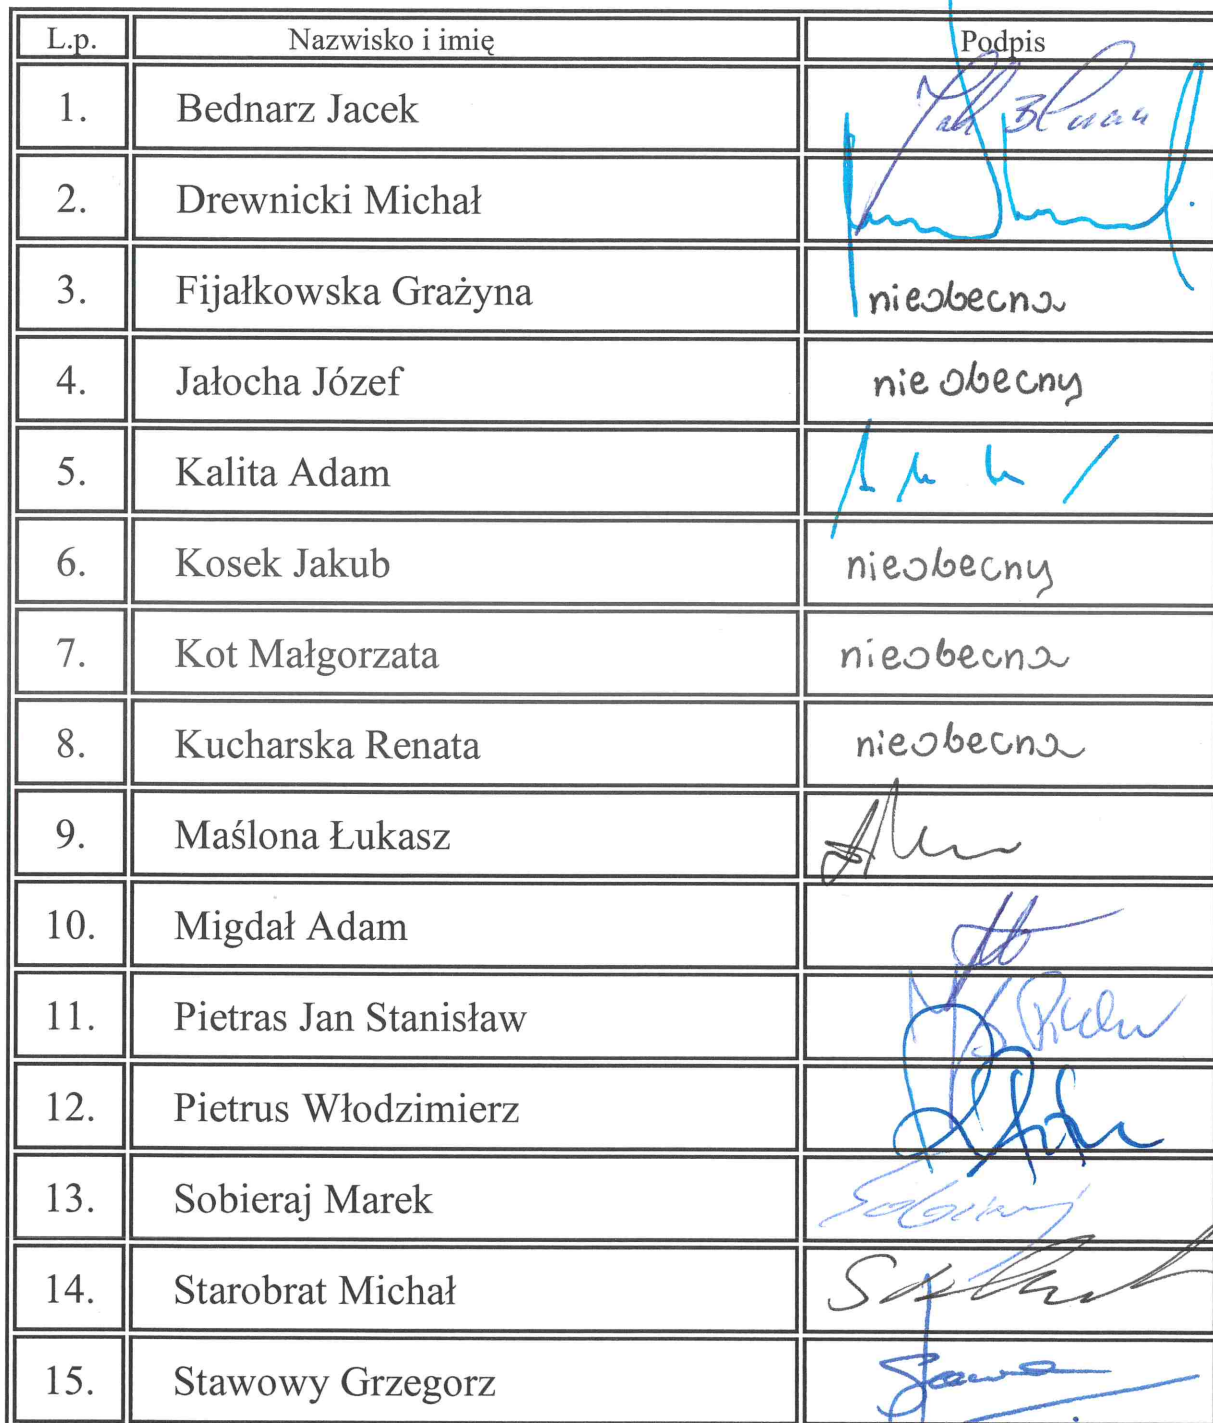 L.p. Nazwisko i imię Podpis
1. Bednarz Jacek
2. Drewnicki Michał
3. Fijałkowska Grażyna nieobecna
4. Jałocha Józef nieobecny
5. Kalita Adam
6. Kosek Jakub nieobecny
7. Kot Małgorzata nieobecna
8. Kucharska Renata nieobecna
9. Maślona Łukasz
10. Migdał Adam
11. Pietras Jan Stanisław
12. Pietrus Włodzimierz
13. Sobieraj Marek
14. Starobrat Michał
15. Stawowy Grzegorz